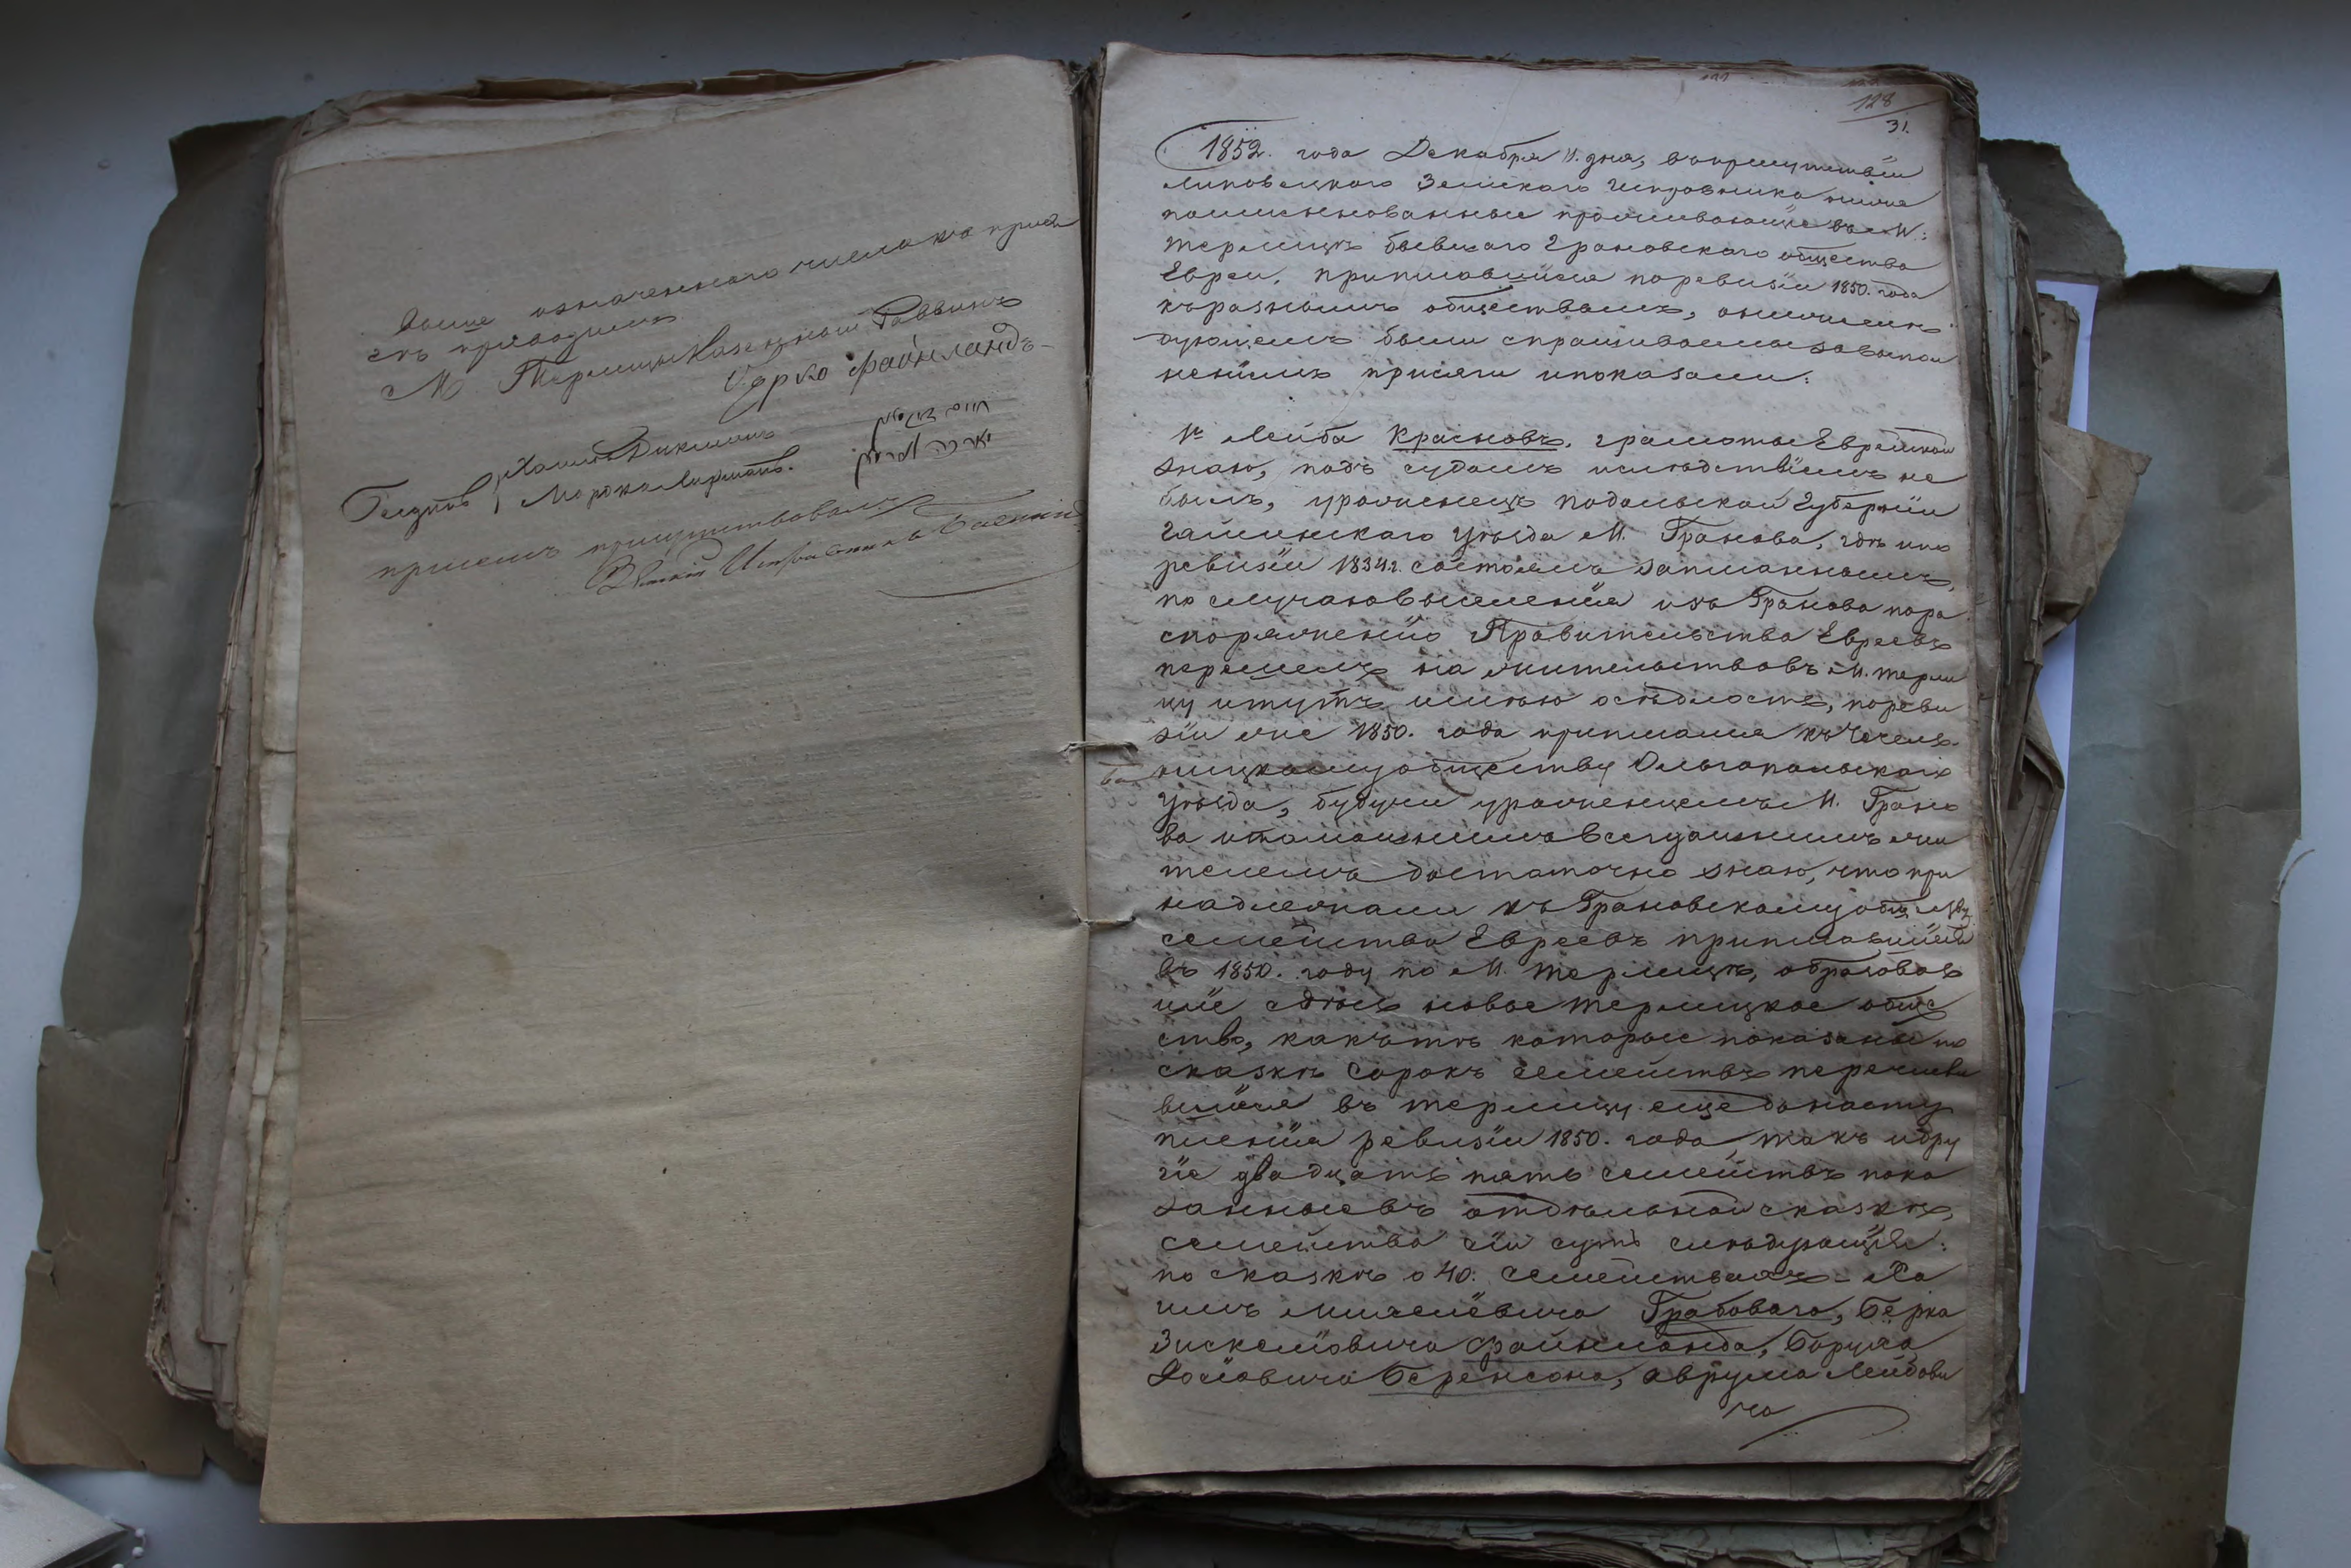 выше означеннаго числа къ прися
гѣ приводилъ
М. Терлицы Казенный Раввинъ
Берко Файнландъ
Хаимъ Дикманъ
Морко Лирманъ.
присемъ присутствовалъ
Земскій Исправникъ
128
31.
1852. года Декабря 11. дня, въ присутствіи
Липовецкаго Земскаго Исправника ниже
поименнованные проживающіе въ М:
Терлицѣ бывшаго Грановскаго общества
Евреи, приписавшіеся по ревизіи 1850. года
къ разнымъ обществамъ, о нижеслѣ
дующемъ были спрашиваемы за выпол
неніемъ присяги и показали:
1е Лейба Красновъ, грамоты Еврейской
знаю, подъ судомъ и слѣдствіемъ не
былъ, уроженецъ Подольской Губерніи
Гайсинскаго Уѣзда М. Гранова, гдѣ и по
ревизіи 1834 г. состоялъ записаннымъ,
по случаю выселенія изъ Гранова по ра
споряженію Правительства Евреевъ
перешелъ на жительство въ М. Терли
цу и тутъ имѣю осѣдлость, по реви
зіи же 1850. года приписался къ Чечель
ницкому обществу Ольгопольскаго
Уѣзда, будучи уроженцемъ М. Грано
ва и тамошнимъ всегдашнимъ жи
телемъ достаточно знаю, что при
надлежали къ Грановскому обществу
семейства Евреевъ приписавшіеся
въ 1850. году по М. Терлицѣ, образовав
шіе здѣсь новое Терлицкое обще
ство, какъ тѣ которые показаны по
сказкѣ сорокъ семействъ перечисли
вшіеся въ Терлицу еще до насту
пленія ревизіи 1850. года, такъ и дру
гіе двадцать пять семействъ пока
занные въ отдѣльной сказкѣ,
семейства сіи суть слѣдующія:
по сказкѣ о 40. семействахъ – Ха
имъ Грабоваго, Берка
Зискелiовича Файнланда, Боруха
Іосіовича Беренсона, Аврума Лейбови
ча